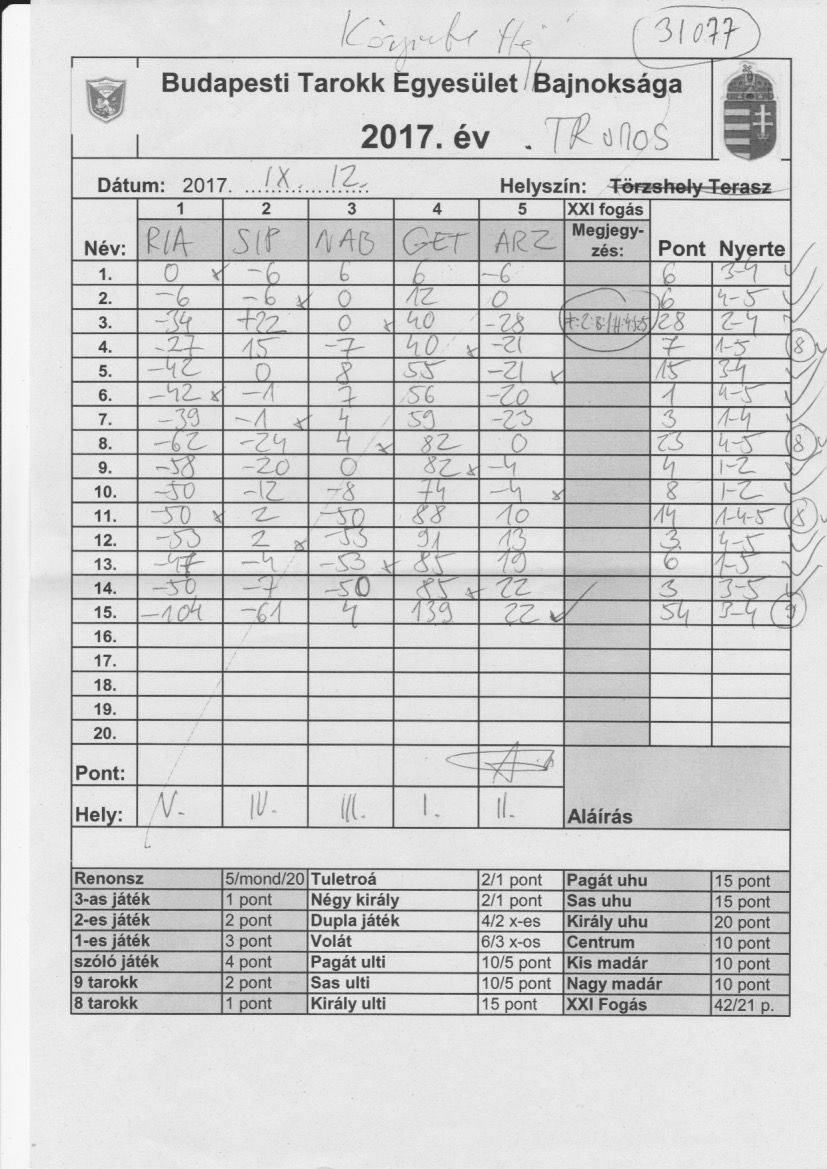 31077
Budapesti Tarokk Egyesület Bajnoksága
2017. év
Dátum: 2017. IX. 12. Helyszín: Törzshely Terasz
1 2 3 4 5 XXI fogás
Név: RIA SIP NAB GET ARZ Megjegyzés: Pont Nyerte
1. 0 x -6 6 6 -6 6 3-4
2. -6 -6 x 0 12 0 6 4-5
3. -34 +22 0 x 40 -28 28 2-4
4. -27 15 -7 40 x -21 7 1-5 8
5. -42 0 8 55 -21 x 15 34
6. -42 x -1 7 56 -20 1 4-5
7. -39 -1 x 4 59 -23 3 1-4
8. -62 -24 4 x 82 0 23 4-5 8
9. -58 -20 0 82 x -4 4 1-2
10. -50 -12 -8 74 -4 x 8 1-2
11. -50 x 2 -50 88 10 14 1-4-5 8
12. -53 2 x -53 91 13 3 4-5
13. -47 -4 -53 x 85 19 6 1-5
14. -50 -7 -50 85 x 22 3 3-5
15. -104 -61 4 139 22 54 3-4 9
16.
17.
18.
19.
20.
Pont:
Hely: V. IV. III. I. II. Aláírás
Renonsz 5/mond/20 Tuletroá 2/1 pont Pagát uhu 15 pont
3-as játék 1 pont Négy király 2/1 pont Sas uhu 15 pont
2-es játék 2 pont Dupla játék 4/2 x-es Király uhu 20 pont
1-es játék 3 pont Volát 6/3 x-os Centrum 10 pont
szóló játék 4 pont Pagát ulti 10/5 pont Kis madár 10 pont
9 tarokk 2 pont Sas ulti 10/5 pont Nagy madár 10 pont
8 tarokk 1 pont Király ulti 15 pont XXI Fogás 42/21 p.